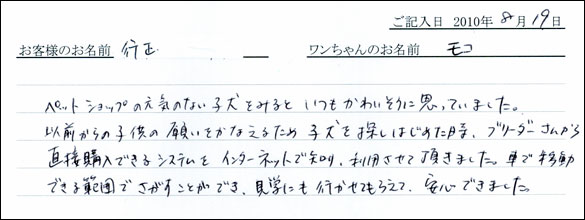 ご記入日 2010年 8月 19日
お客様のお名前 行正 ワンちゃんのお名前 モコ
ペットショップの元気のない子犬をみると いつもかわいそうに思っていました。
以前からの子供の願いをかなえるため 子犬を探しはじめた時、ブリーダーさんから
直接購入できるシステムをインターネットで知り、利用させて頂きました。車で移動
できる範囲でさがすことができ、見学にも行かせてもらえて、安心できました。